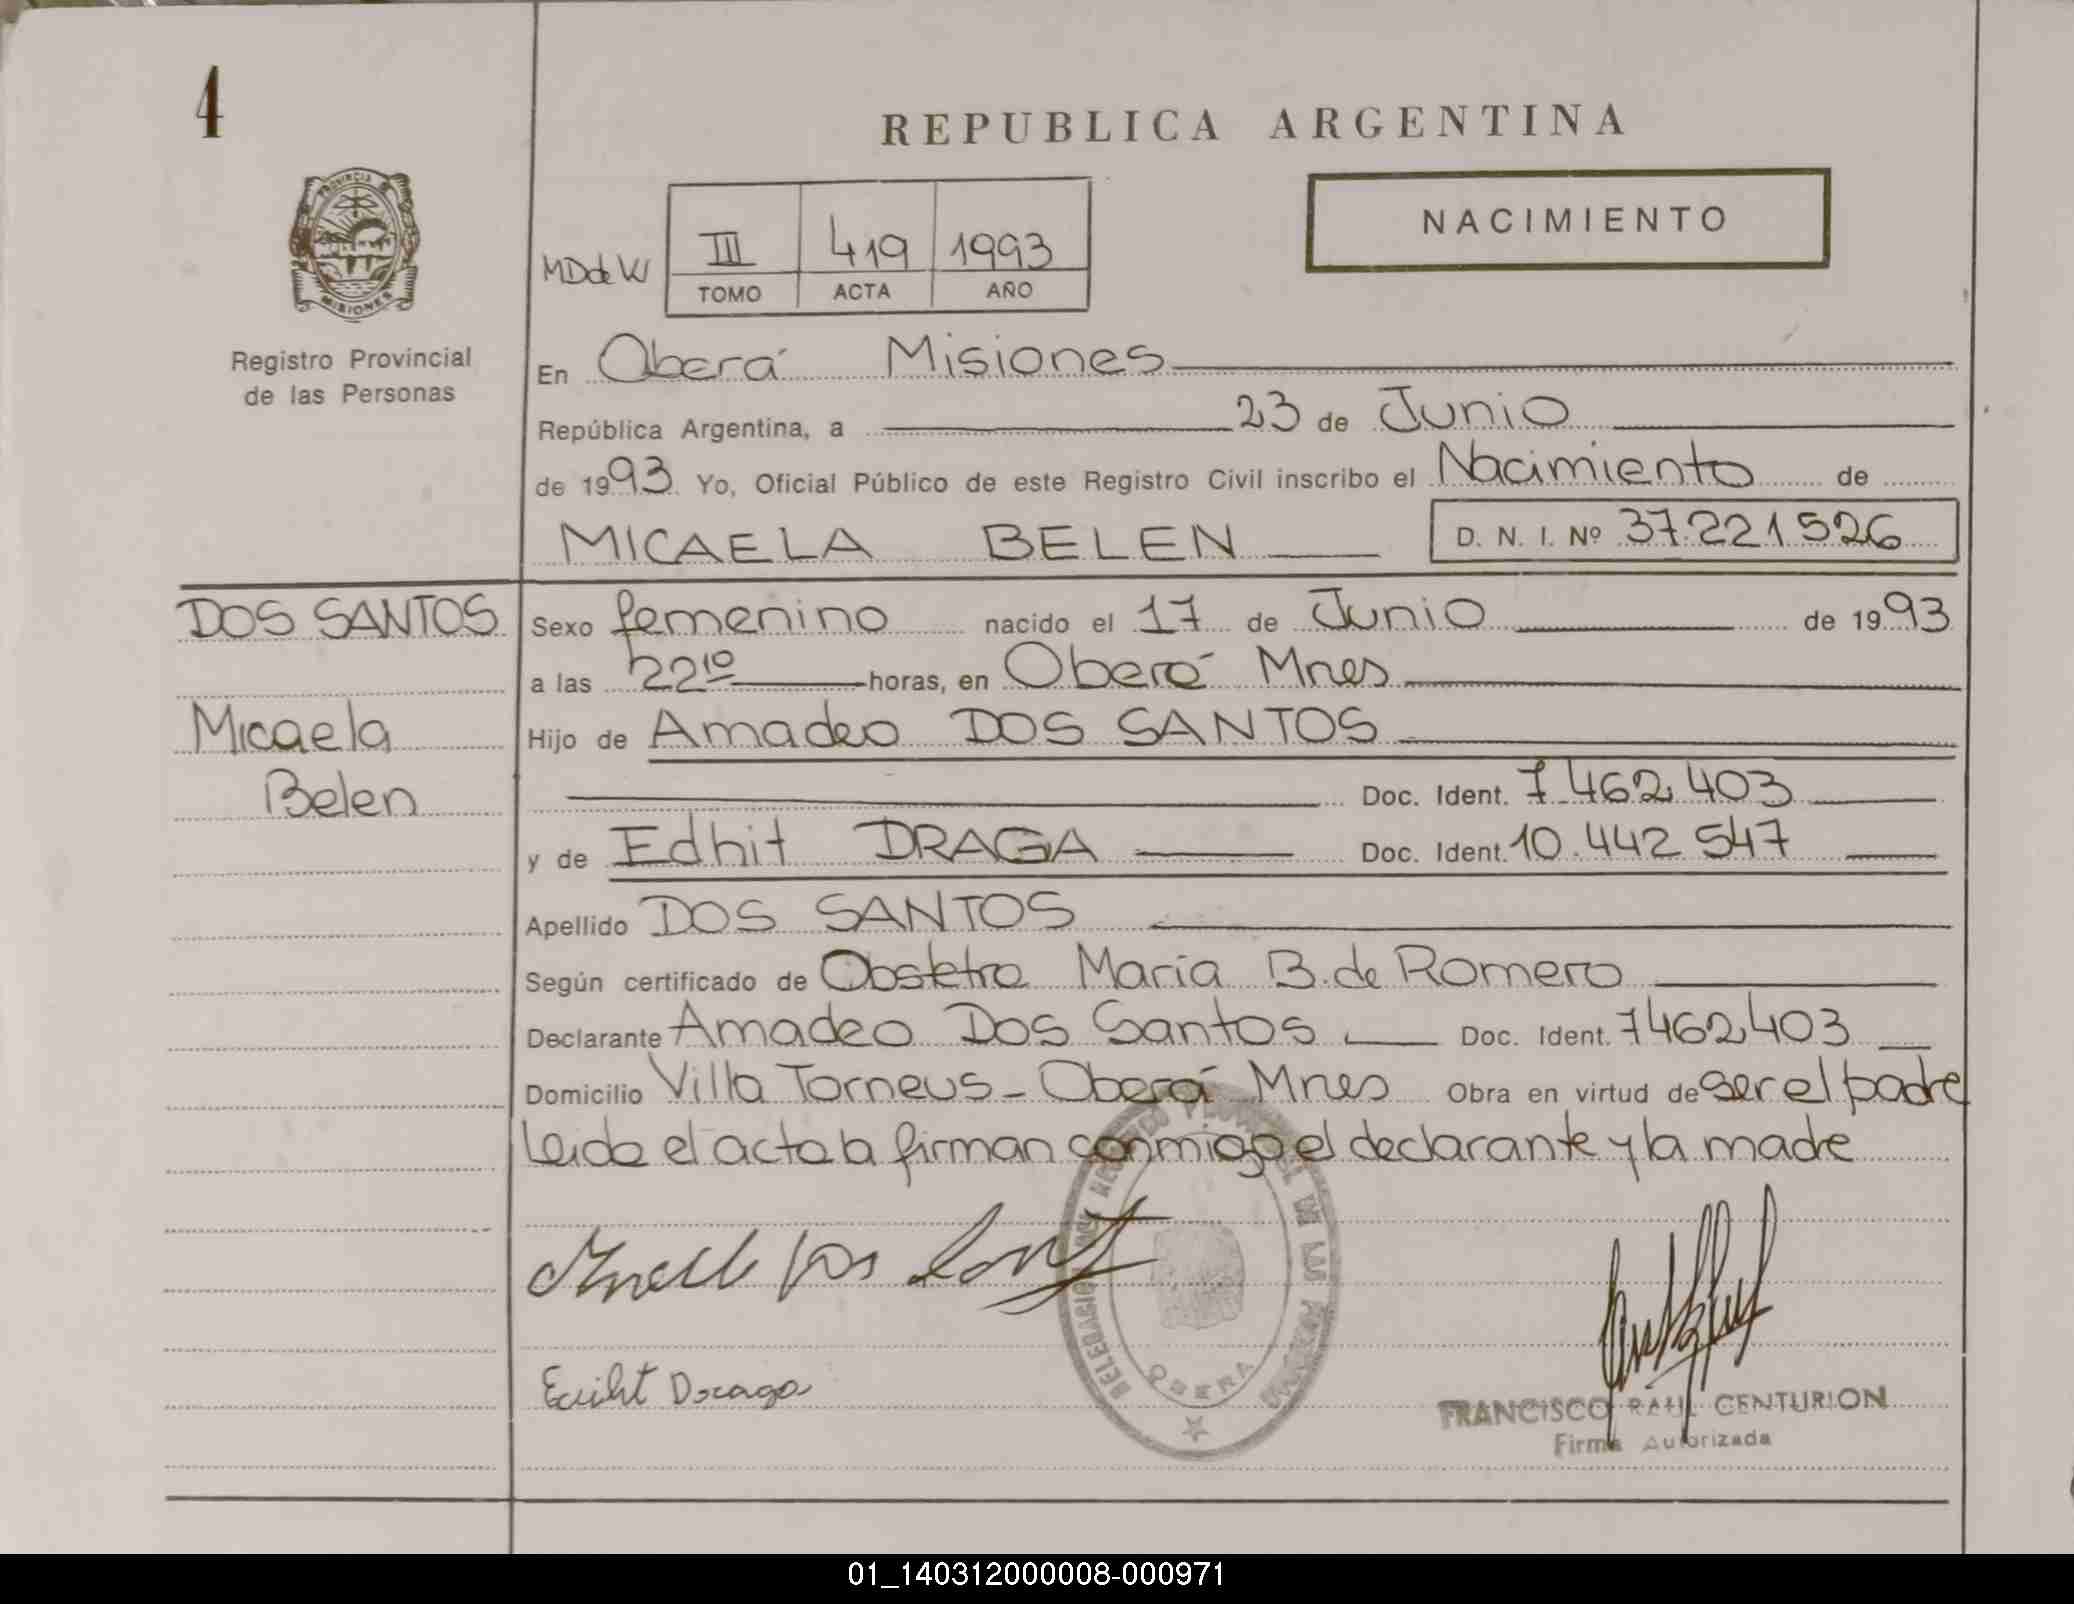 4
REPUBLICA ARGENTINA
NACIMIENTO
PROVINCIA DE
MISIONES
Registro Provincial
de las Personas
MDde W
III 419 1993
TOMO ACTA AÑO
En Oberá Misiones
República Argentina, a 23 de Junio
de 1993 Yo, Oficial Público de este Registro Civil inscribo el Nacimiento de
MICAELA BELEN D. N. I. Nº 37.221.526
DOS SANTOS
Micaela
Belen
Sexo femenino nacido el 17 de Junio de 1993
a las 22¹⁰ horas, en Oberá Mnes
Hijo de Amadeo DOS SANTOS
Doc. Ident. 7.462.403
y de Edhit DRAGA Doc. Ident. 10.442.547
Apellido DOS SANTOS
Según certificado de Obstetra Maria B. de Romero
Declarante Amadeo Dos Santos Doc. Ident. 7462403
Domicilio Villa Torneus - Oberá Mnes Obra en virtud de ser el padre
Leida el acta la firman conmigo el declarante y la madre
DE LAS
OBERA
Draga
FRANCISCO RAUL CENTURION
Firma Autorizada
01_140312000008-000971